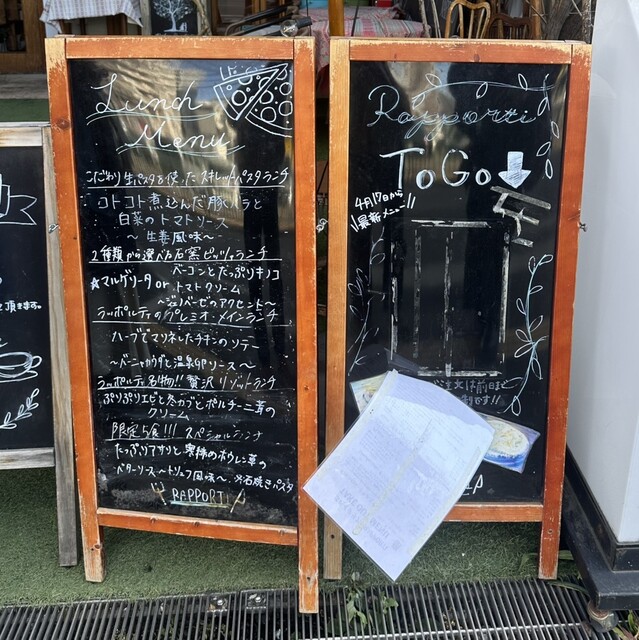 Lunch
Menu
こだわり生パスタを使ったスキレットパスタランチ
コトコト煮込んだ豚バラと
白菜のトマトソース
～生姜風味～
2種類から選べる石窯ピッツァランチ
ベーコンとたっぷりキノコ
★マルゲリータ or トマトクリーム
～ジェノベーゼのアクセント～
ラッポルティのプレミオ・メインランチ
ハーブでマリネしたチキンのソテー
～バーニャカウダと温泉卵ソース～
ラッポルティ名物!! 贅沢リゾットランチ
ぷりぷりエビと冬カブとポルチーニ茸の
クリーム
限定5食!!! スペシャルランチ
たっぷりアサリと
ホウレン草の
バターソース～トリュフ風味～
石焼きパスタ
RAPPORTI
Rapporti
ToGo
4月17日から
最新メニュー!!
前日まで
です!!
頂きます。